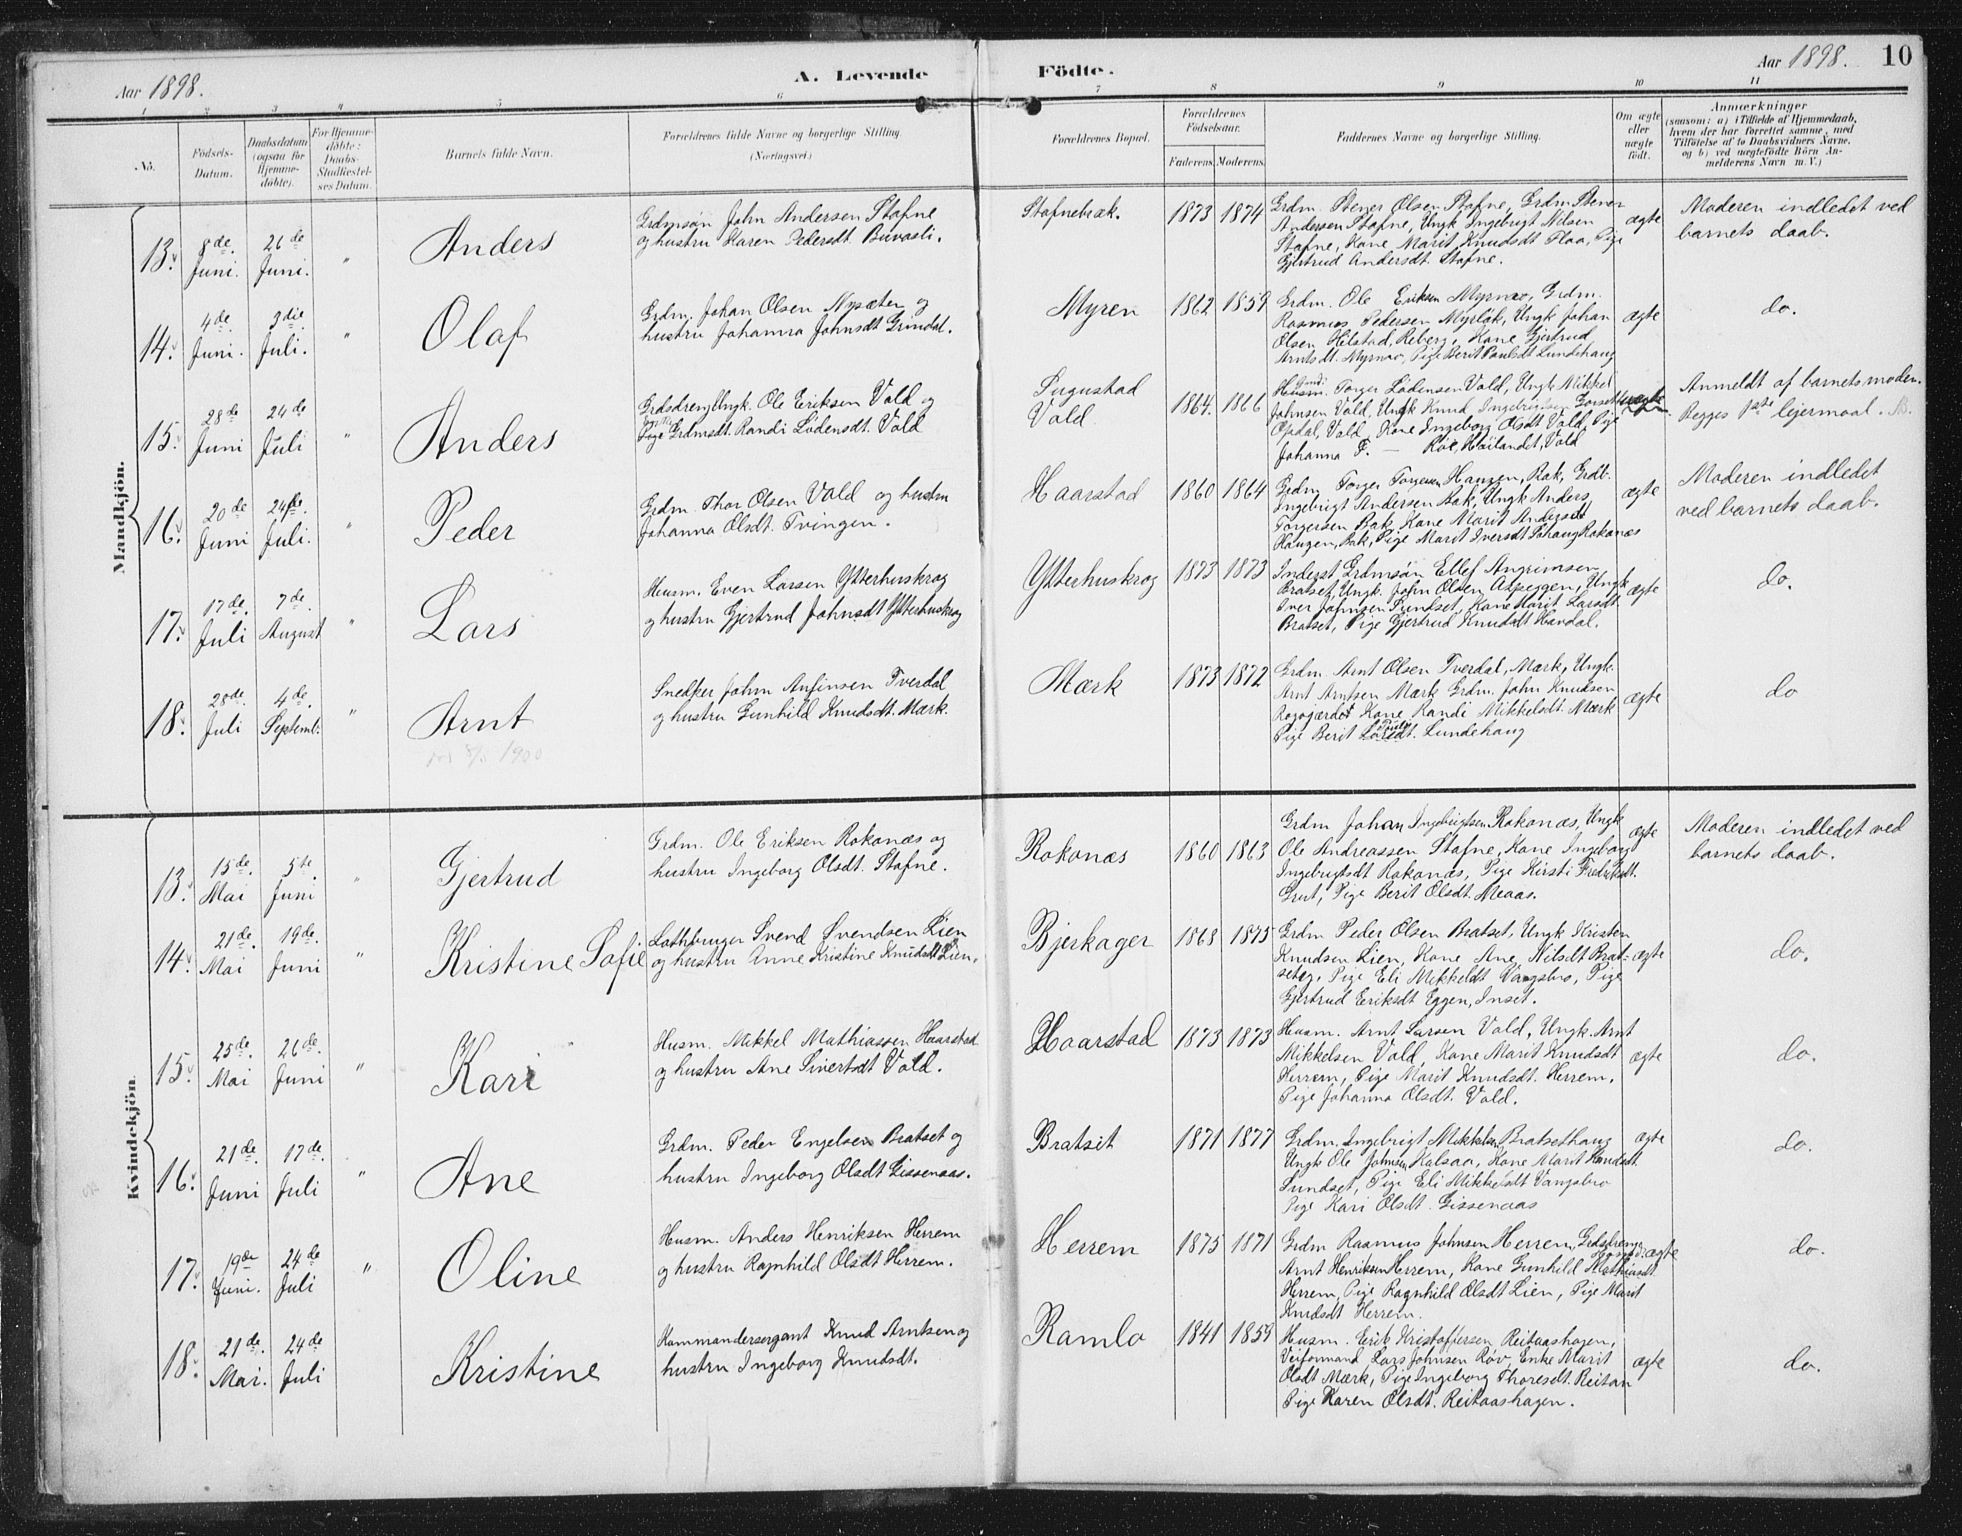 Aar 1898.
A. Levende
Födte.
Aar 1898.
10
1 2 3 4 5 6 7 8 9 10 11
No.
Födsels-
Datum.
Daabsdatum
(ogsaa for
Hjemme-
döbte).
For Hjemme-
döbte:
Daabs-
Stadfæstel-
ses Datum.
Barnets fulde Navn.
Forældrenes fulde Navne og borgerlige Stilling.
(Næringsvei)
Forældrenes Bopæl.
Forældrenes
Födselsaar.
Faderens.
Moderens.
Faddernes Navne og borgerlige Stilling.
Om ægte
eller
uægte
födt.
Anmærkninger
(saasom: a) i Tilfælde af Hjemmedaab,
hvem der har forrettet samme, med
Tilföielse af to Daabsvidners Navne,
og b) ved uægtefödte Börn An-
melderens Navn m. V.)
Mandkjön.
13.
8de
Juni.
26de
Juni.
"
Anders
Grdmsøn John Andersen Stafne
og hustru Karen Pedersdt. Buvasli.
Stafnebæk.
1873
1874
Grdm. Stener Olsen Stafne, Grdm Stener
Andersen Stafne, Ungk Ingebrigt Nilsen
Stafne, Kone Marit Knudsdt Flaa, Pige
Gjertrud Andersdt. Stafne.
ægte
Moderen indledet ved
barnets daab.
14.
4de
Juni.
3die
Juli.
"
Olaf
Grdm. Johan Olsen Nysæter og
hustru Johanna Johnsdt Grindal.
Myren
1862
1859
Grdm. Ole Eriksen Myrmo, Grdm.
Rasmus Pedersen Myrløk, Ungk Johan
Olsen Hilstad, Reberg, Kone Gjertrud
Arntsdt. Myrmo, Pige Berit Paulsdt Lundehaug
ægte
do.
15.
28de
Juni
24de
Juli
"
Anders
Grdsdreng Ungk. Ole Eriksen Vold og
Pige Grdmsdt. Randi Lodensdt. Vold
Sugustad
Vold.
1864.
1866
Husm. Torger Lodensen Vold, Ungk Mikkel
Johnsen Vold, Ungk Knud Ingebrigtsen Gorset
Opdal, Vold, Kone Ingeborg Olsdt Vold, Pige
Johanna F. — Röe, Höilandet, Vold
uægte
Anmeldt af barnets moder.
Begges 1ste leiermaal.
16.
20de
Juni
24de.
Juli.
"
Peder
Grdm Thor Olsen Vold og hustru
Johanna Olsdt. Tvingen.
Haarstad
1860
1864
Grdm Torger Torgersen Haugen, Rak, Grdb.
Ingebrigt Andersen Rak, Ungk Anders
Torgersen Rak, Kone Marit Andersdt
Haugen, Rak, Pige Marit Iversdt Fohaug Rokonæs
ægte
Moderen indledet
ved barnets daab.
17.
17de.
Juli
7de.
August
"
Lars
Husm. Even Larsen Ytterhuskrog
og hustru Gjertrud Johnsdt Ytterhuskrog
Ytterhuskrog
1873
1873
Inderst Grdmsøn Ellef Angrimsen
Bratset, Ungk. John Olsen Aspeggen, Ungk
Iver Johnsen Sundset, Kone Marit Larsdt
Bratset, Pige Gjertrud Knudsdt Havdal.
ægte
do.
18.
28de.
Juli
4de.
Septemb.
"
Arnt
1900
Snedker John Anfinsen Tverdal
og hustru Gunhild Knudsdt. Mærk.
Mærk
1873
1872
Grdm. Arnt Olsen Tverdal, Mærk, Ungk.
Arnt Arntsen Mærk Grdm. John Knudsen
Rogogjærdet Kone Randi Mikkelsdt. Mærk
Pige Berit Lundehaug
ægte
do
Kvindekjön.
13.
15de.
Mai
5te
Juni
"
Gjertrud
Grdm. Ole Eriksen Rokonæs og
hustru Ingeborg Olsdt. Stafne.
Rokonæs
1860
1863
Grdm Johan Ingebrigtsen Rokonæs, Ungk
Ole Andreassen Stafne, Kone Ingeborg
Ingebrigtsdt Rokonæs, Pige Kirsti Fredriksdt.
Grut, Pige Berit Olsdt. Meaas.
ægte
Moderen indledet ved
barnets daab.
14.
21de.
Mai
19de.
Juni
"
Kristine Sofie
Lathbruger Svend Svendsen Lien
og hustru Anne Kristine Knudsdt Lien.
Bjerkager
1868
1875
Grdm Peder Olsen Bratset, Ungk Kristen
Knudsen Lien, Kone Ane Nilsdt Brat-
seteg, Pige Eli Mikkelsdt Vangsbro, Pige
Gjertrud Eriksdt Eggen, Inset.
ægte
do.
15.
25de.
Mai
26de.
Juni
"
Kari
Husm. Mikkel Mathiassen Haarstad
og hustru Ane Sivertsdt Vold.
Haarstad
1873
1873
Husm. Arnt Larsen Vold, Ungk. Arnt
Mikkelsen Vold, Kone Marit Knudsdt
Herrem, Pige Marit Knudsdt. Herrem.
Pige Johanna Olsdt. Vold.
ægte
do.
16.
21de.
Juni
17de.
Juli
"
Ane
Grdm. Peder Engelsen Bratset og
hustru Ingeborg Olsdt Gissenaas.
Bratset
1871
1877
Grdm. Ingebrigt Mikkelsen Bratsethaug
Ungk Ole Johnsen Halsaa, Kone Marit Knudsdt.
Sundset, Pige Eli Mikkelsdt Vangsbro
Pige Kari Olsdt. Gissenaas
ægte
do.
17.
19de
Juni.
24de
Juli
"
Oline
Husm. Anders Henriksen Herrem
og hustru Ragnhild Olsdt Herrem.
Herrem
1875
1871
Grdm Rasmus Johnsen Herrem, Grdsdreng
Arnt Henriksen Herrem, Kone Gunhild Mathiasdt
Herrem, Pige Ragnhild Olsdt Lien, Pige Marit
Knudsdt Herrem.
ægte
do.
18.
21de
Mai.
24de
Juli
Kristine
Kommandersergant Knud Arntsen og
hustru Ingeborg Knudsdt.
Ramlo
1841
1859
Husm. Erik Kristoffersen Reitaashagen,
Veiformand Lars Johnsen Röv, Enke Marit
Olsdt Mærk, Pige Ingeborg Thoresdt. Reitan
Pige Karen Olsdt. Reitaashagen.
ægte
do.